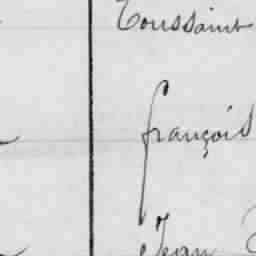 Toussaint
françois
Jean